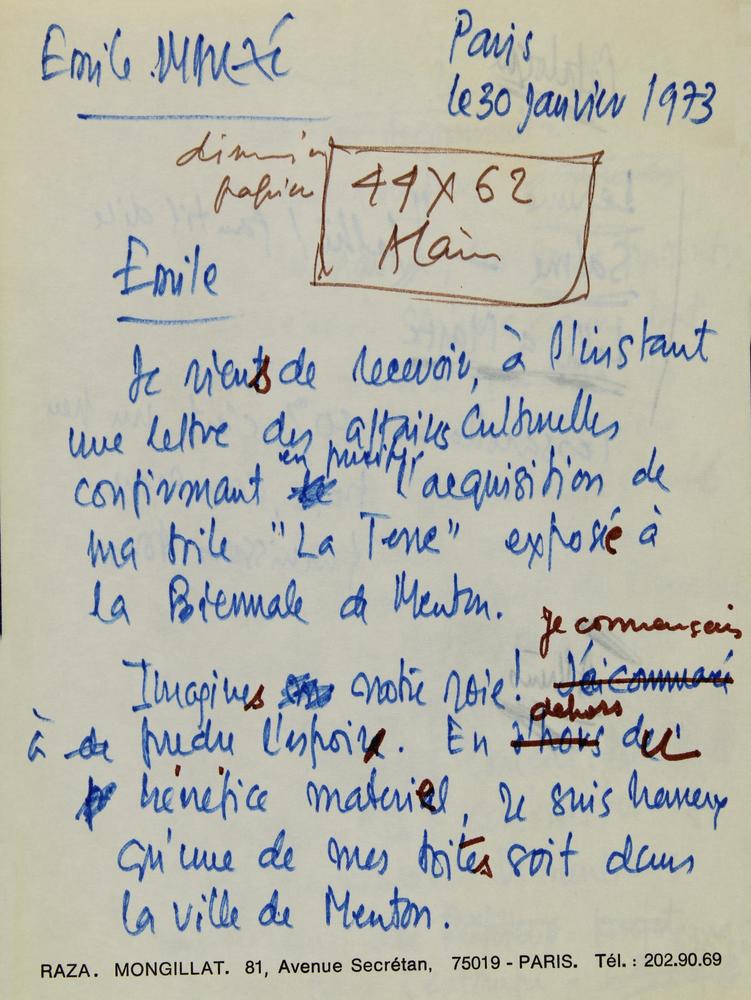 Emile
Paris
le 30 Janvier 1973
papier
44 X 62
Alain
Emile
Je viens de recevoir, à l'instant
une lettre des affaires Culturelles
en
confirmant l'acquisition de
ma toile "La Terre" exposée à
la Biennale de Menton.
je commençais
Imagines notre joie! J'ai commencé
dehors
à de perdre l'espoir. En d'hors du
bénéfice materiel, je suis heureux
qu'une de mes toiles soit dans
la ville de Menton.
RAZA. MONGILLAT. 81, Avenue Secrétan, 75019 - PARIS. Tél. : 202.90.69